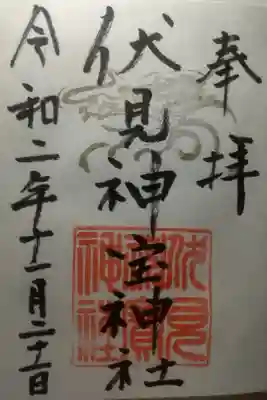 奉拝
伏見神宝神社
伏見神寶神社
令和二年十一月二十二日